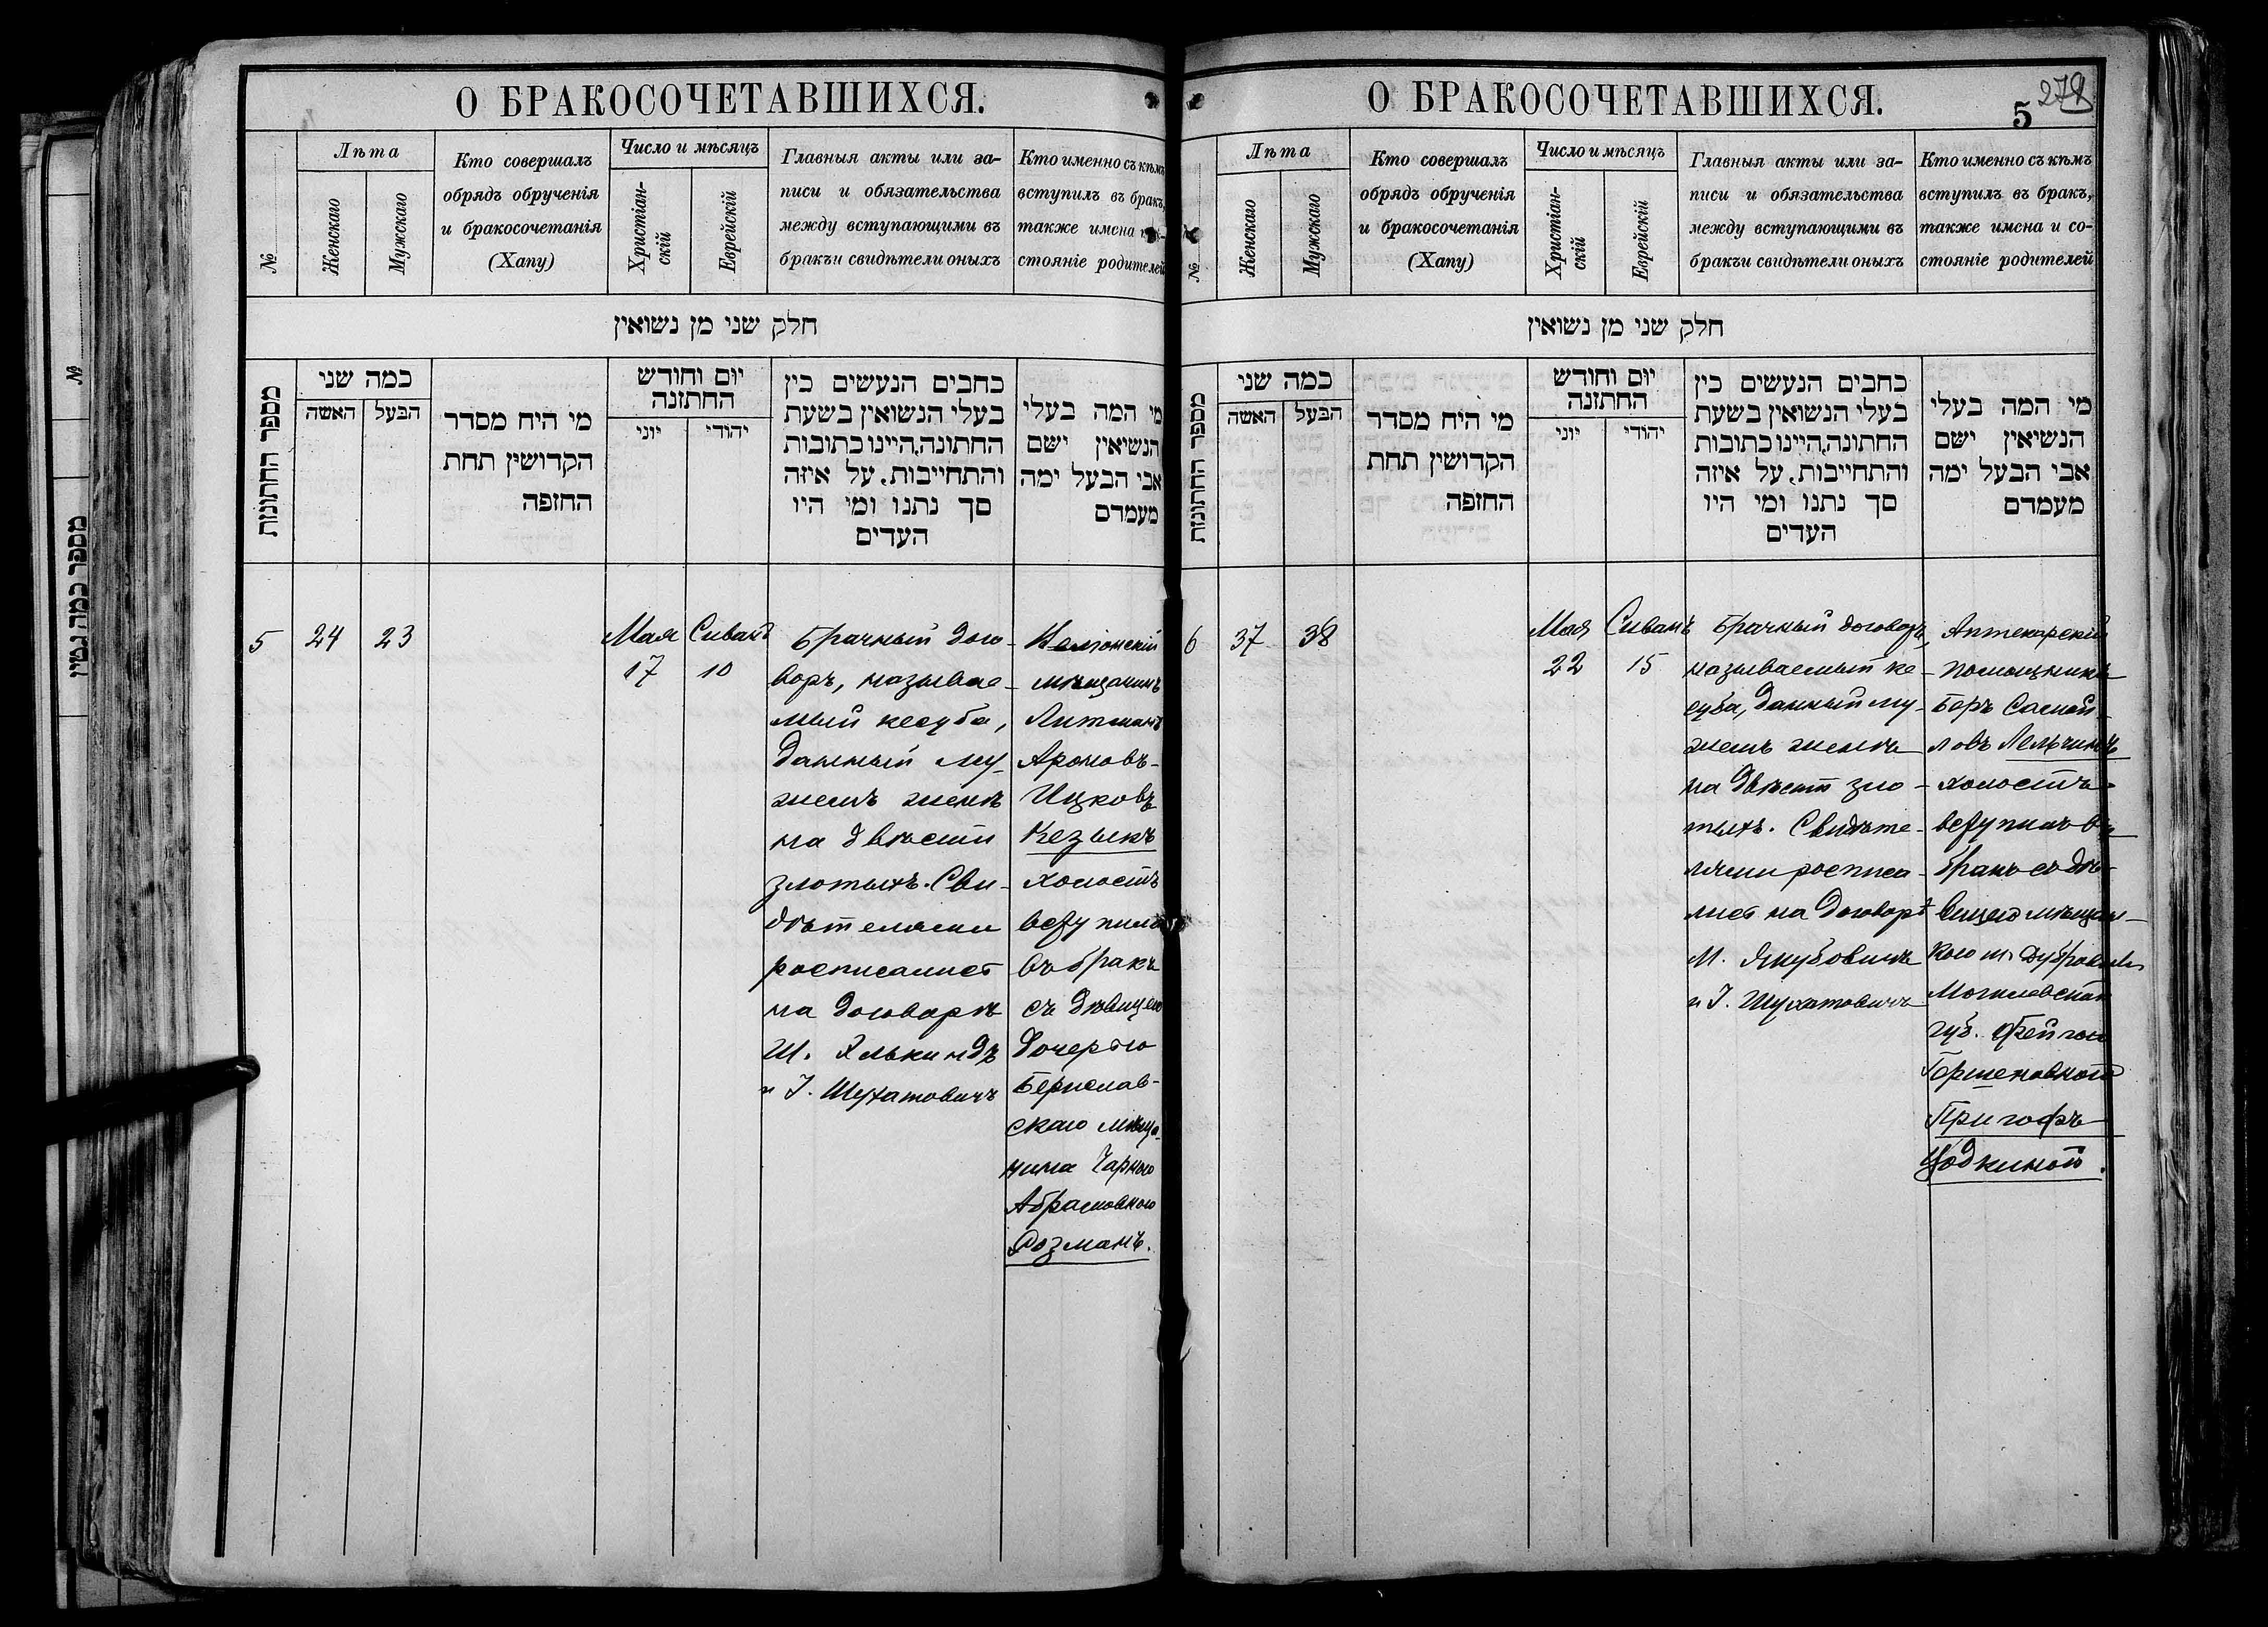 О БРАКОСОЧЕТАВШИХСЯ.
№
Лѣта
Женскаго
Мужскаго
Кто совершалъ
обрядъ обрученія
и бракосочетанія
(Хапу)
Число и мѣсяцъ
Христіан-
скій
Еврейскій
Главныя акты или за-
писи и обязательства
между вступающими въ
бракъи свидѣтели оныхъ
Кто именно съ кѣмъ
вступилъ въ бракъ,
также имена
стояніе родителей
חלק שני מן נשואין
מספר החתונות
כמה שני
האשה
הבעל
מי היח מסדר
הקדושין תחת
החופה
יום וחודש
החתונה
יוני
יהודי
כחבים הנעשים בין
בעלי הנשואין בשעת
החתונה,היינו כתובות
והתחייבות, על איזה
סך נתנו ומי היו
העדים
מי המה בעלי
הנשיאין ישם
אבי הבעל ימה
מעמדם
5
24
23
Мая
17
Сиванъ
10
Брачный дого-
воръ, называе-
мый кесуба,
данный му-
жемъ женѣ
на двѣсти
злотыхъ. Сви-
дѣтелями
росписались
на договорѣ
Ш. Элькиндъ
и І. Шухатовичъ
мѣщанинъ
Литманъ
Ароновъ-
Ицковъ
Кезыкъ
холостъ
вступилъ
въ бракъ
съ дѣвицею
дочерью
Берислав-
скаго мѣща-
нина Чарною
Абрамовною
Розманъ.
О БРАКОСОЧЕТАВШИХСЯ.
5
278
№
Лѣта
Женскаго
Мужскаго
Кто совершалъ
обрядъ обрученія
и бракосочетанія
(Хапу)
Число и мѣсяцъ
Христіан-
скій
Еврейскій
Главныя акты или за-
писи и обязательства
между вступающими въ
бракъи свидѣтели оныхъ
Кто именно съ кѣмъ
вступилъ въ бракъ,
также имена и со-
стояніе родителей
חלק שני מן נשואין
מספר החתונות
כמה שני
האשה
הבעל
מי היח מסדר
הקדושין תחת
החופה
יום וחודש
החתונה
יוני
יהודי
כחבים הנעשים בין
בעלי הנשואין בשעת
החתונה,היינו כתובות
והתחייבות, על איזה
סך נתנו ומי היו
העדים
מי המה בעלי
הנשיאין ישם
אבי הבעל ימה
מעמדם
6
37
38
Мая
22
Сиванъ
15
Брачный договоръ,
называемый ке-
суба, данный му-
жемъ женѣ
на двѣсти зло-
тыхъ. Свидѣте-
лями росписа-
лись на договорѣ
М. Якубовичъ
и І. Шухатовичъ
Аптекарскій
помощникъ
Беръ Самой-
ловъ Лельчинъ
холостъ
вступилъ въ
бракъ съ дѣ-
вицею мѣщан-
кою м. Дубровны
Могилевской
губ. Фейгою
Гершеновною
Пригофъ
Цодкиной.
№
מספר כמה גטין